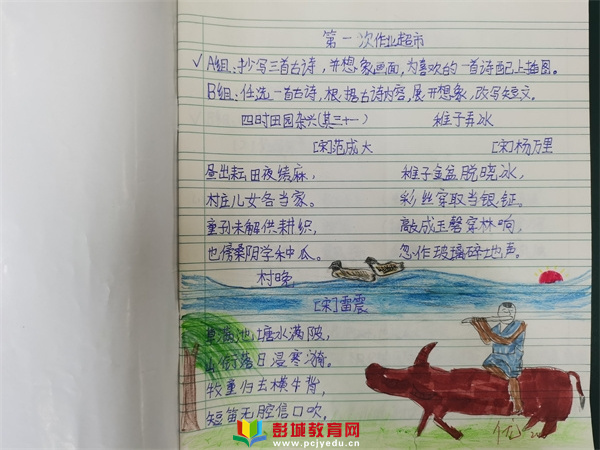 第一次作业超市
✓A组:抄写三首古诗,并想象画面,为喜欢的一首诗配上插图。
B组:任选一首古诗,根据古诗内容,展开想象,改写短文。
四时田园杂兴(其三十一)
[宋]范成大
昼出耘田夜绩麻,
村庄儿女各当家。
童孙未解供耕织,
也傍桑阴学种瓜。
稚子弄冰
[宋]杨万里
稚子金盆脱晓冰,
彩丝穿取当银钲。
敲成玉磬穿林响,
忽作玻璃碎地声。
村晚
[宋]雷震
草满池塘水满陂,
山衔落日浸寒漪。
牧童归去横牛背,
短笛无腔信口吹。
优
彭城教育网
www.pcjyedu.cn